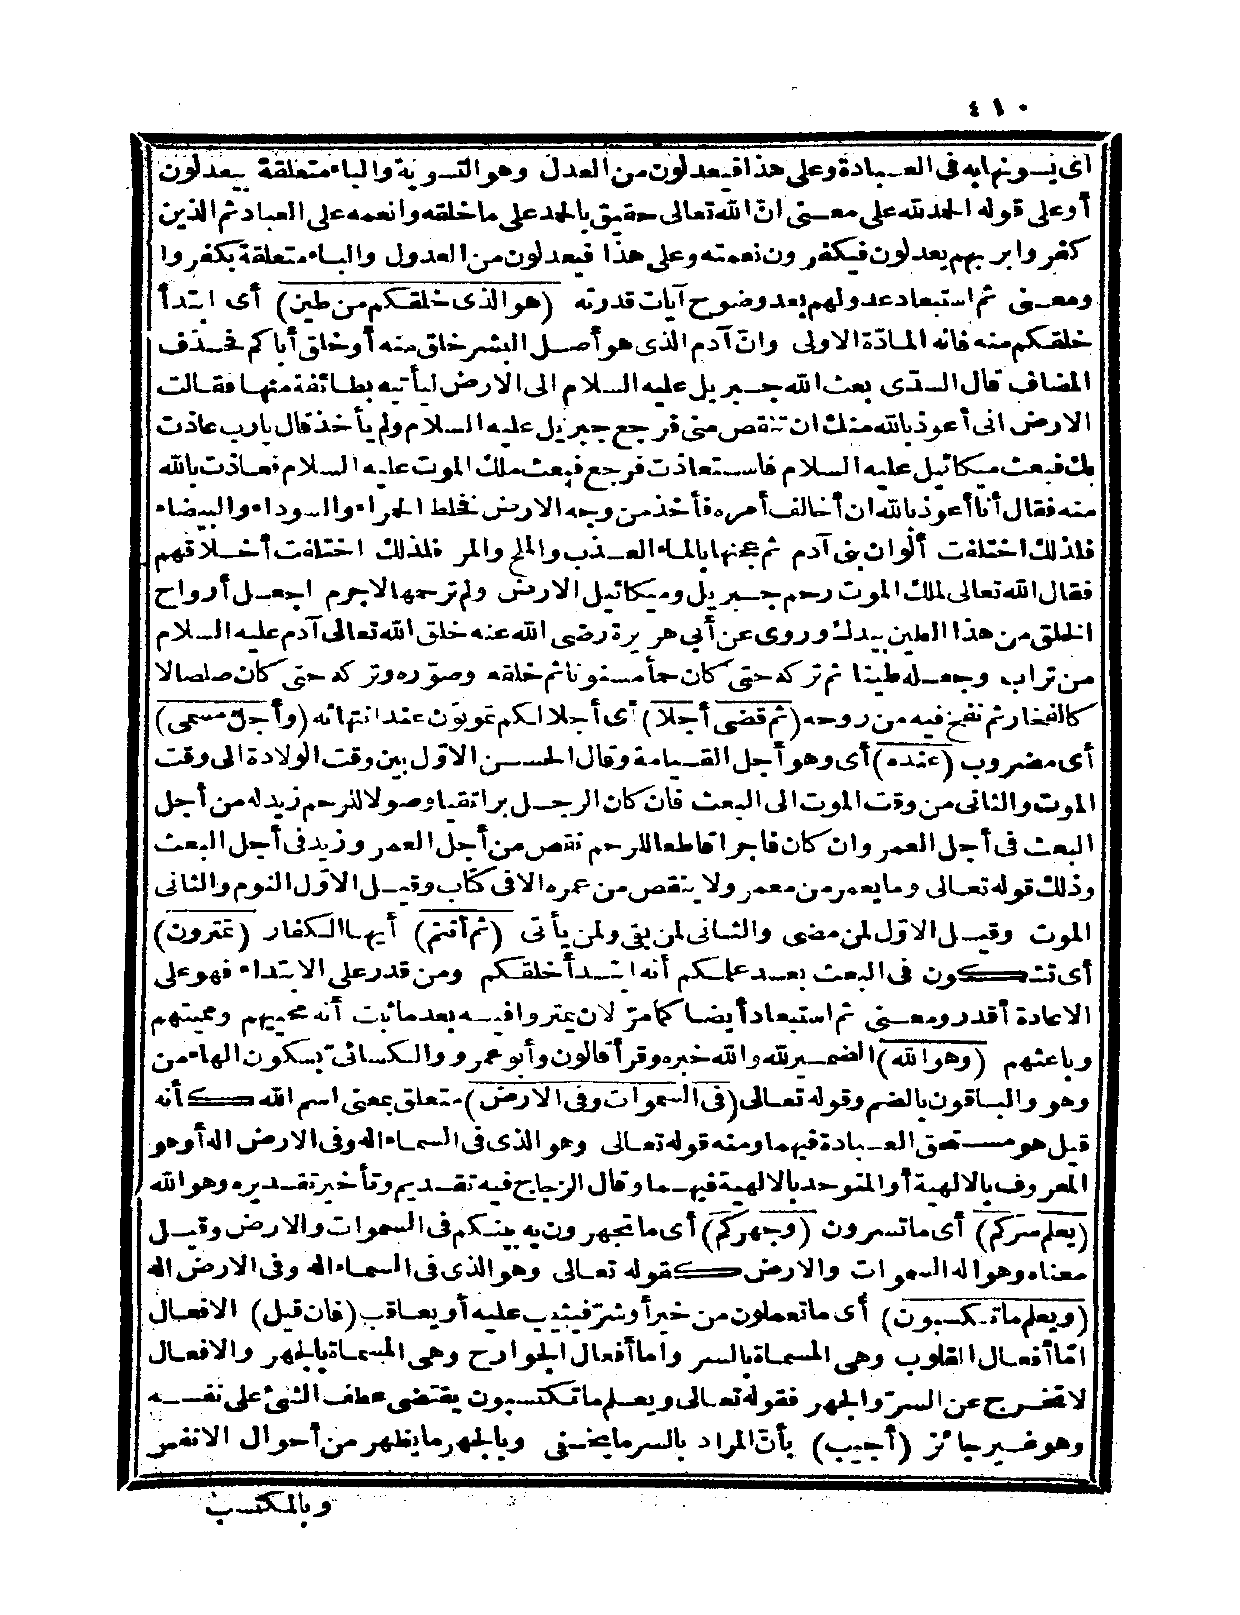 ٤١٠
أى يسوونها به فى العبادة وعلى هذا فيعدلون من العدل وهو التسوية والباء متعلقة بيعدلون
أو على قوله الحمد لله على معنى انّ الله تعالى حقيق بالحمد على ما خلقه وأنعمه على العباد ثم الذين
كفروا بربهم يعدلون فيكفرون نعمته وعلى هذا فيعدلون من العدول والباء متعلقة بكفروا
ومعنى ثم استبعاد عدولهم بعد وضوح آيات قدرته (هو الذى خلقكم من طين) أى ابتدأ
خلقكم منه فانه المادّة الاولى وانّ آدم الذى هو أصل البشر خلق منه أو خلق أباكم فحذف
المضاف قال السدّى بعث الله جبريل عليه السلام الى الارض ليأتيه بطائفة منها فقالت
الارض انى أعوذ بالله منك ان تنقص منى فرجع جبريل عليه السلام ولم يأخذ قال يارب عاذت
بك فبعث ميكائيل عليه السلام فاستعاذت فرجع فبعث ملك الموت عليه السلام فعاذت بالله
منه فقال أنا أعوذ بالله ان أخالف أمره فأخذ من وجه الارض فخلط الحمراء والسوداء والبيضاء
فلذلك اختلفت ألوان بنى آدم ثم عجنها بالماء العذب والملح والمر فلذلك اختلفت أخلاقهم
فقال الله تعالى لملك الموت رحم جبريل وميكائيل الارض ولم ترحمها لاجرم اجعل أرواح
الخلق من هذا الطين بيدك وروى عن أبى هريرة رضى الله عنه خلق الله تعالى آدم عليه السلام
من تراب وجعله طينا ثم تركه حتى كان حمأ مسنونا ثم خلقه وصوّره وتركه حتى كان صلصالا
كالفخار ثم نفخ فيه من روحه (ثم قضى أجلا) أى أجلا لكم تموتون عند انتهائه (وأجل مسمى)
أى مضروب (عنده) أى وهو أجل القيامة وقال الحسن الاوّل بين وقت الولادة الى وقت
الموت والثانى من وقت الموت الى البعث فان كان الرجل برا تقيا وصولا للرحم زيد له من أجل
البعث فى أجل العمر وان كان فاجرا قاطعا للرحم نقص من أجل العمر وزيد فى أجل البعث
وذلك قوله تعالى وما يعمر من معمر ولا ينقص من عمره الا فى كتاب وقيل الاوّل النوم والثانى
الموت وقيل الاوّل لمن مضى والثانى لمن بقى ولمن يأتى (ثم أنتم) أيها الكفار (تمترون)
أى تشكون فى البعث بعد علمكم أنه ابتدأ خلقكم ومن قدر على الابتداء فهو على
الاعادة أقدر ومعنى ثم استبعاد أيضا كما مرّ لان يمتروا فيه بعد ما ثبت أنه محييهم ومميتهم
وباعثهم (وهو الله) الضمير لله والله خبره وقرأ قالون وأبو عمرو والكسائىّ بسكون الهاء من
وهو والباقون بالضم وقوله تعالى (فى السموات وفى الارض) متعلق بمعنى اسم الله كأنه
قيل هو مستحق العبادة فيهما ومنه قوله تعالى وهو الذى فى السماء اله وفى الارض اله أو هو
المعروف بالالهية أو المتوحد بالالهية فيهما وقال الزجاج فيه تقديم وتأخير تقديره وهو الله
(يعلم سرّكم) أى ما تسرون (وجهركم) أى ما تجهرون به بينكم فى السموات والارض وقيل
معناه وهو اله السموات والارض كقوله تعالى وهو الذى فى السماء اله وفى الارض اله
(ويعلم ما تكسبون) أى ما تعملون من خير أو شرّ فيثيب عليه أو يعاقب (فان قيل) الافعال
امّا أفعال القلوب وهى المسماة بالسر واما أفعال الجوارح وهى المسماة بالجهر والافعال
لا تخرج عن السرّ والجهر فقوله تعالى ويعلم ما تكسبون يقتضى عطف الشئ على نفسه
وهو غير جائز (أجيب) بأنّ المراد بالسر ما يخفى وبالجهر ما يظهر من أحوال الانفس
وبالمكتسب